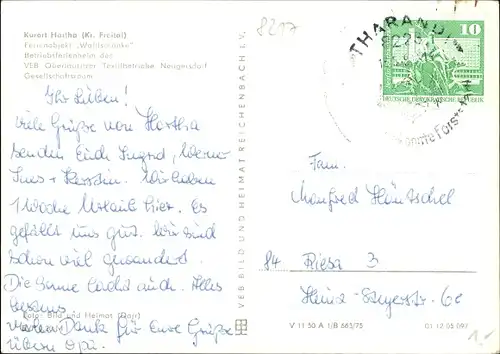 Kurort Hartha (Kr. Freital)
Ferienobjekt "Waldschänke"
Betriebsferienheim des
VEB Oberlausitzer Textilbetriebe Neugersdorf
Gesellschaftsraum
8217
THARANDT
10
DEUTSCHE DEMOKRATISCHE REPUBLIK
Ihr Lieben!
Viele Grüße von Hartha
senden Euch Ingrid, Werner
Ines + Kerstin. Wir haben
1 Woche Urlaub hier. Es
gefällt uns gut. Wir sind
schon viel gewandert.
Die Sonne lacht auch. Alles
bestens
vielen Dank für Eure Grüße
übern Opa.
Foto: Bild und Heimat (Darr)
VEB BILD UND HEIMAT REICHENBACH I. V.
Fam.
Manfred Häntzschel
84 Riesa 3
6c
V 11 50 A 1/B 665/75
01 12 05 097
1,-